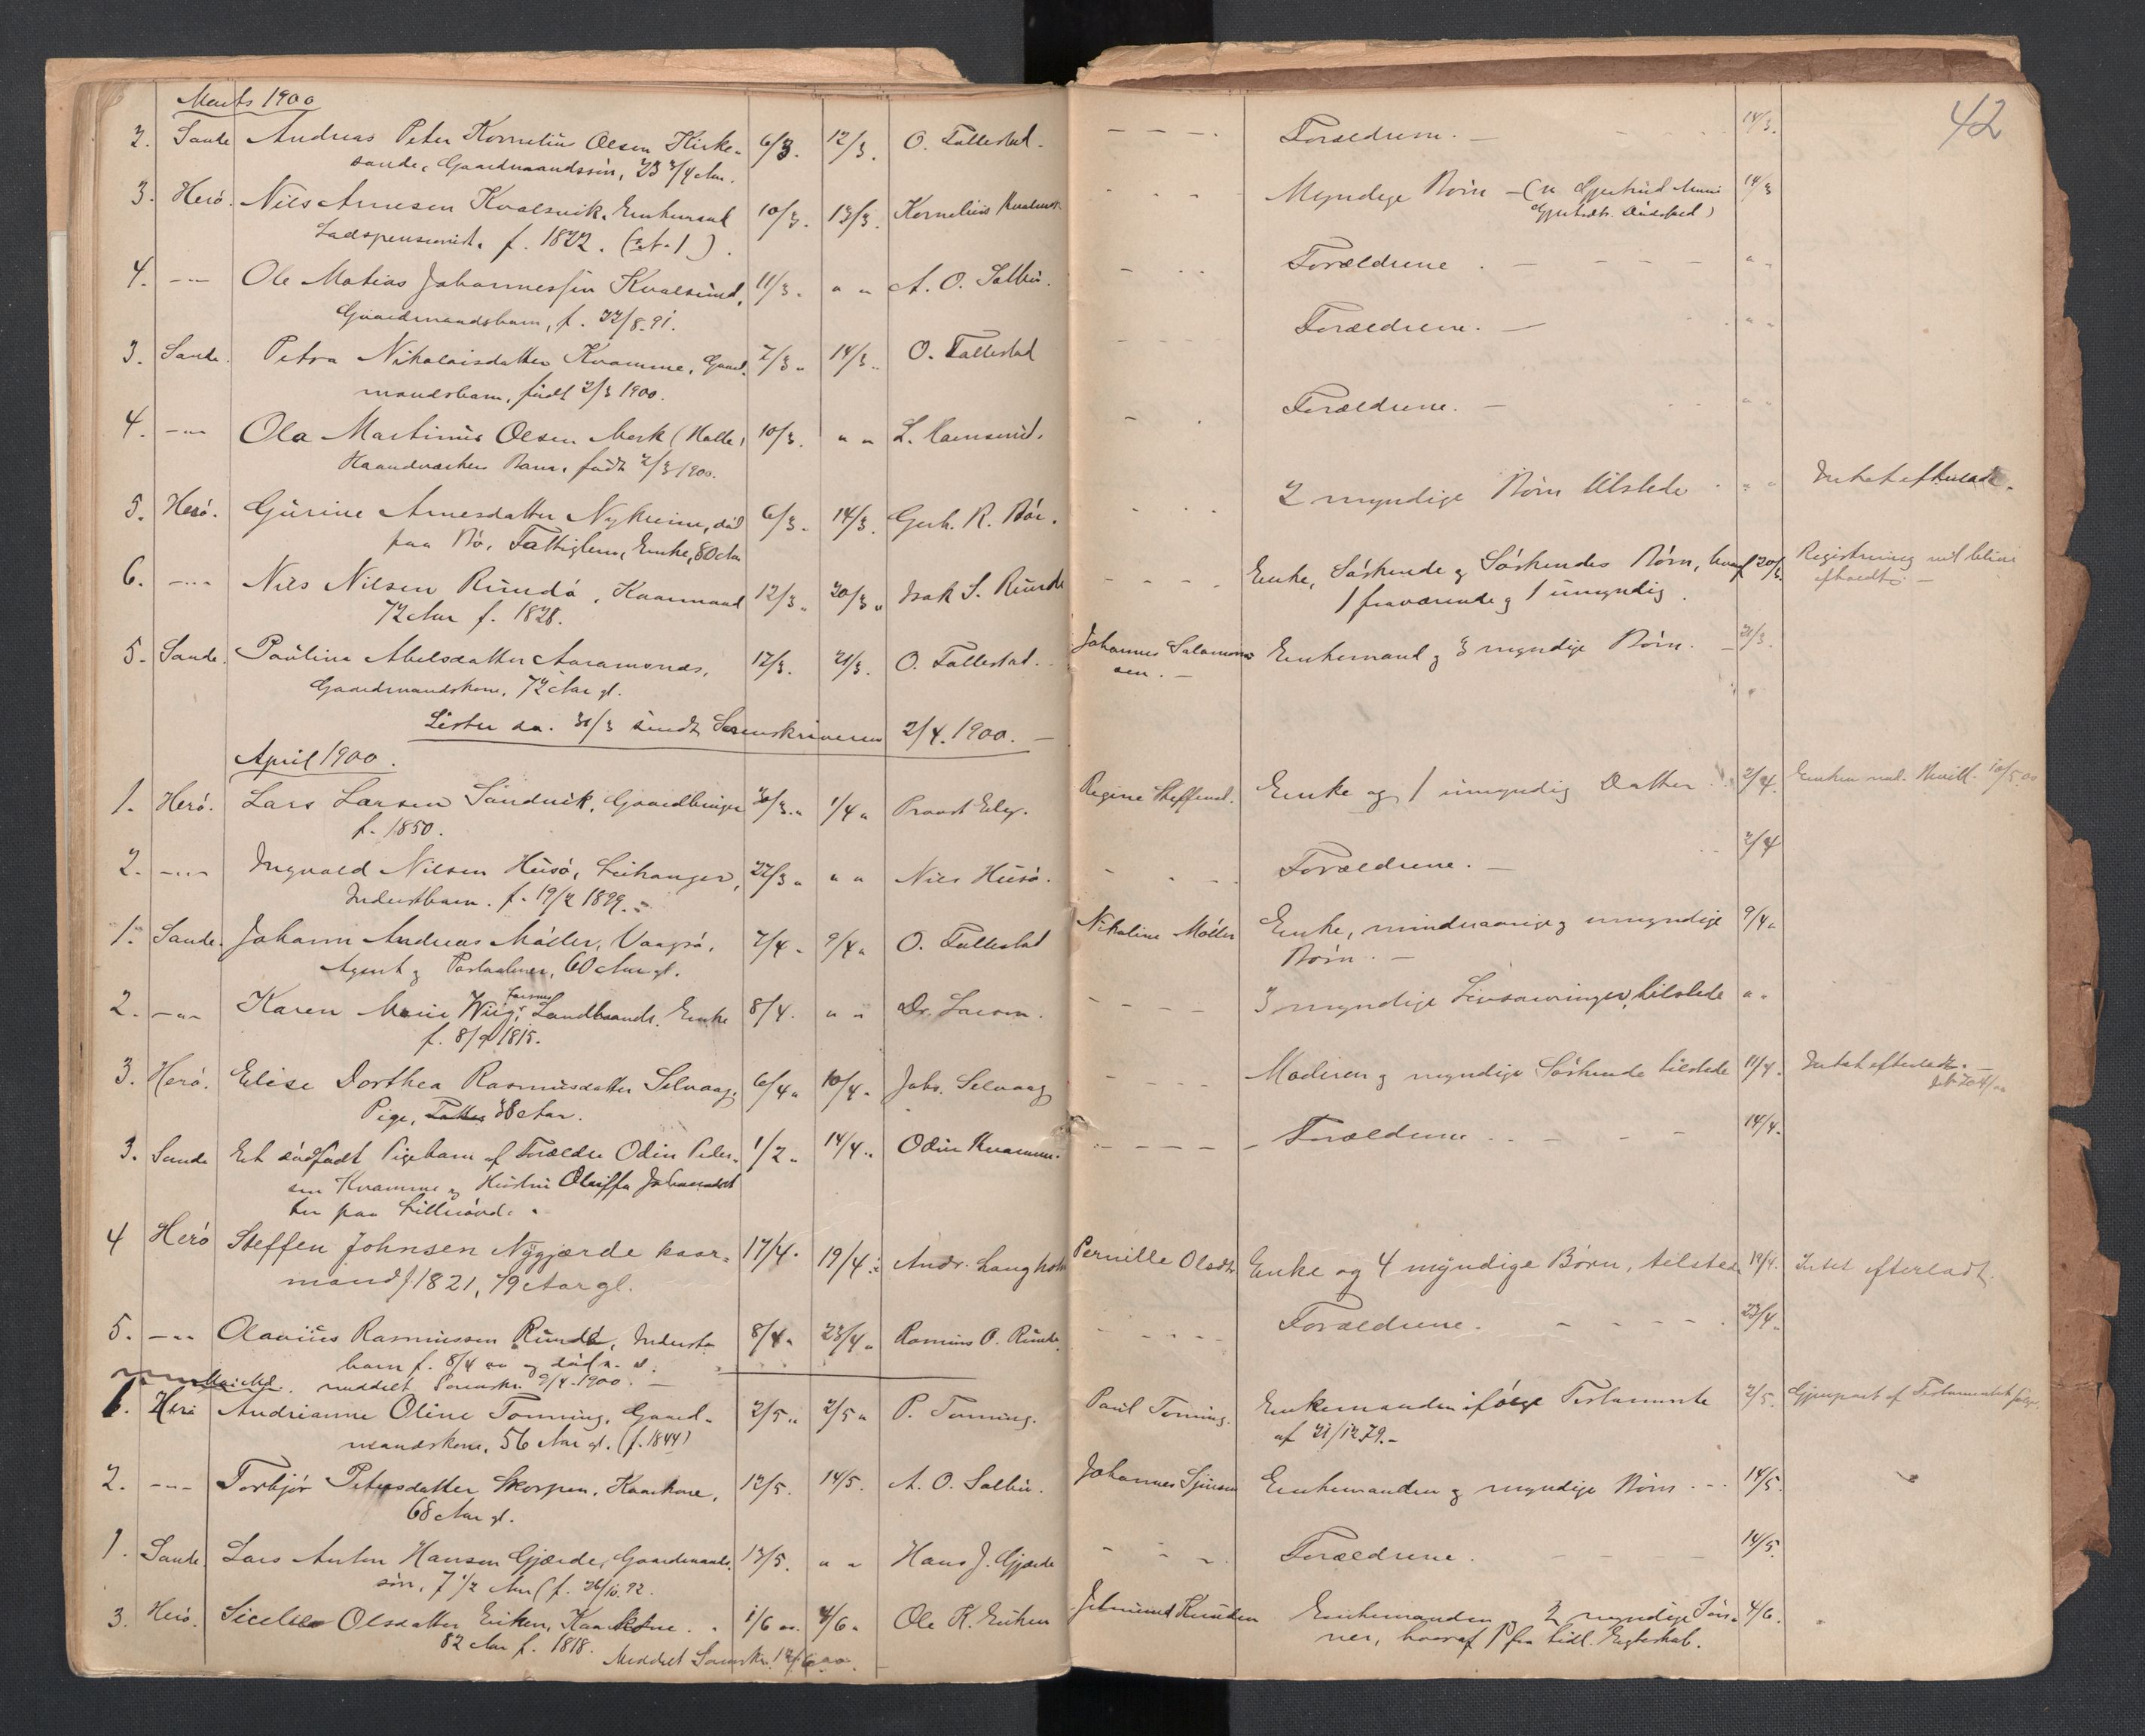 42
Marts 1900
2. Sande Andreas Peter Kornelius Olsen Kirke- 6/3. 12/3. O. Tallestad. - - - Forældrene. - 14/3.
sande, Gaardmandssøn, 23 3/4 Aar.
3. Herö. Nils Arnesen Kvalsvik, Enkemand 10/3. 13/3. Kornelius Kvalsvik - - - Myndige Börn - 14/3
Ladspensionist. f. 1822.
4. - - - Ole Matias Johannessen Kvalsund, 11/3. " " A. O. Sætbu. - - - Forældrene. - - - - " "
Gaardmandsbarn, f. 22/8-91.
3. Sande. Petra Nikolaisdatter Kvamme, Gaard- 7/3. 14/3. O. Tallestad - - - Forældrene. - " "
mandsbarn, født 2/3 1900.
4. - " - Ola Martinus Olsen Mork (Halle) 10/3. " " L. Hamsund. - - Forældrene. - " "
Haandværkers Barn, født 2/3 1900.
5. Herö. Gurine Arnesdatter Nykreim, död 6/3. 14/3. Gerh. R. Bö. - - - 2 myndige Börn tilstede " " Intet efterladt.
paa Bö, Fattiglem, Enke, 80 Aar
6. - - - Nils Nilsen Rundö, Kaarmand 12/3. 20/3. Isak S. Runde - - - - Enke, Söskende & Söskendes Börn, hvoraf 20/3. Registrering vil blive
72 Aar f. 1828. 1 fraværende & 1 umyndig. afholdt. -
5. Sande. Paulina Abelsdatter Aaramsnes, 17/3. 21/3. O. Tallestad. Johannes Salamons- Enkemand & 3 myndige Börn. - 21/3.
Gaardmandskone, 72 Aar gl. sen. -
Lister da. 31/3 sendt Sorenskriveren 2/4. 1900. -
April 1900.
1. Herö. Lars Larsen Sandvik, Gaardbruger 30/3. 1/4. Provst Eley. Regine Steffensd. Enke og 1 umyndig Datter. 2/4. 10/5.00
f. 1850.
2. - - - Ingvald Nilsen Husö, Leikanger, 22/3. " " Nils Husö. - - - Forældrene. - 2/4
Inderstbarn. f. 19/2 1899.
1. Sande. Johann Andreas Möller, Vaagsö, 7/4. 9/4. O. Tallestad Nikoline Möller Enke, mindreaarige & umyndige 9/4.
Agent & Postaabner, 60 Aar gl. Börn. -
2. - " - Karen Marie Wiig, Landbrands. Enke 8/4. " " Dr. Larsen. - - - 3 myndige Livsarvinger, tilstede " "
f. 8/9 1815.
3. Herö. Elise Dorthea Rasmusdatter Selvaag, 6/4. 10/4. Johs. Selvaag - - - - Moderen & myndige Söskende tilstede 11/4. Intet efterladt. -
Pige, 38 Aar.
3. Sande Et dödfødt Pigebarn af Forældre Odin Peder- 1/2. 14/4. Odin Kvamme. - - - - - Forældrene - - - - 14/4.
sen Kvamme & Hustru Oluffa Johannesdat
ter paa Lillesövd.
4 Herö Steffen Johnsen Nygjærde kaar- 17/4. 19/4. Andr. Langholm Pernille Olsdtr Enke og 4 myndige Börn, tilstede 19/4. Intet efterladt.
mand f 1821, 79 Aar gl.
5. - " - Olavius Rasmussen Runde, Inderste- 8/4. 23/4. Rasmus O. Runde. - - - - - Forældrene. - - - - 23/4.
barn f. 8/4 00 & död s. d.
Mai Md. meddelt Sorenskr. 1900. -
1. Herö Andrianne Oline Tonning, Gaard- 2/5. 2/5. P. Tonning. Paul Tonning. Enkemanden ifölge Testamente 2/5. Gjenpart af Testamentet følger.
mandskone, 56 Aar gl. (f. 1844) af 21/12 79. -
2. - - - Torbjør Petersdatter Skorpen, Kaarkone, 12/5. 14/5. A. O. Sætbu. Johannes Enkemanden & myndige Börn. - - 14/5.
68 Aar gl.
1. Sande. Lars Anton Hansen Gjærde, Gaardmands- 13/5. " " Hans J. Gjærde - - - Forældrene. - 14/5.
søn, 7 1/2 Aar (f. 26/10. 92.
3. Herö. Olsdatter Eiken, Kaarkone. 1/6 00. 4/6. Ole K. Eiken Knudsen Enkemanden & 2 myndige Søn- 4/6.
82 Aar f. 1818. Meddelt Sorenskr. ner, hvoraf 1 fra tidl. Egteskab.